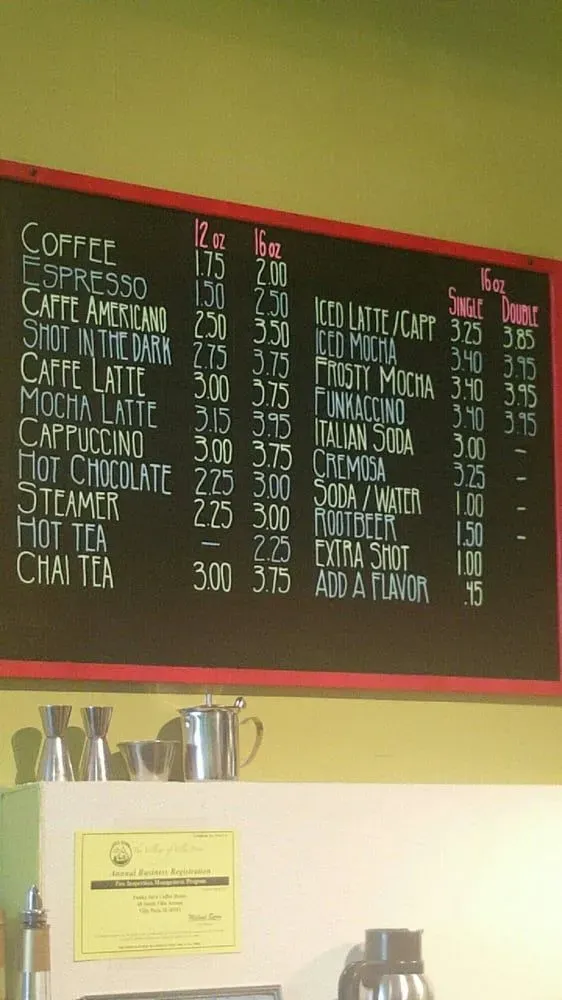 12 oz 16 oz
COFFEE 1.75 2.00
ESPRESSO 1.50 2.50
CAFFE AMERICANO 2.50 3.50
SHOT IN THE DARK 2.75 3.75
CAFFE LATTE 3.00 3.75
MOCHA LATTE 3.15 3.95
CAPPUCCINO 3.00 3.75
HOT CHOCOLATE 2.25 3.00
STEAMER 2.25 3.00
HOT TEA – 2.25
CHAI TEA 3.00 3.75
16 oz
SINGLE DOUBLE
ICED LATTE / CAPP 3.25 3.85
ICED MOCHA 3.40 3.95
FROSTY MOCHA 3.40 3.95
FUNKACCINO 3.40 3.95
ITALIAN SODA 3.00 –
CREMOSA 3.25 –
SODA / WATER 1.00 –
ROOTBEER 1.50 –
EXTRA SHOT 1.00
ADD A FLAVOR .45
The Village of Villa Park
Annual Business Registration
Fire Inspection Management Program